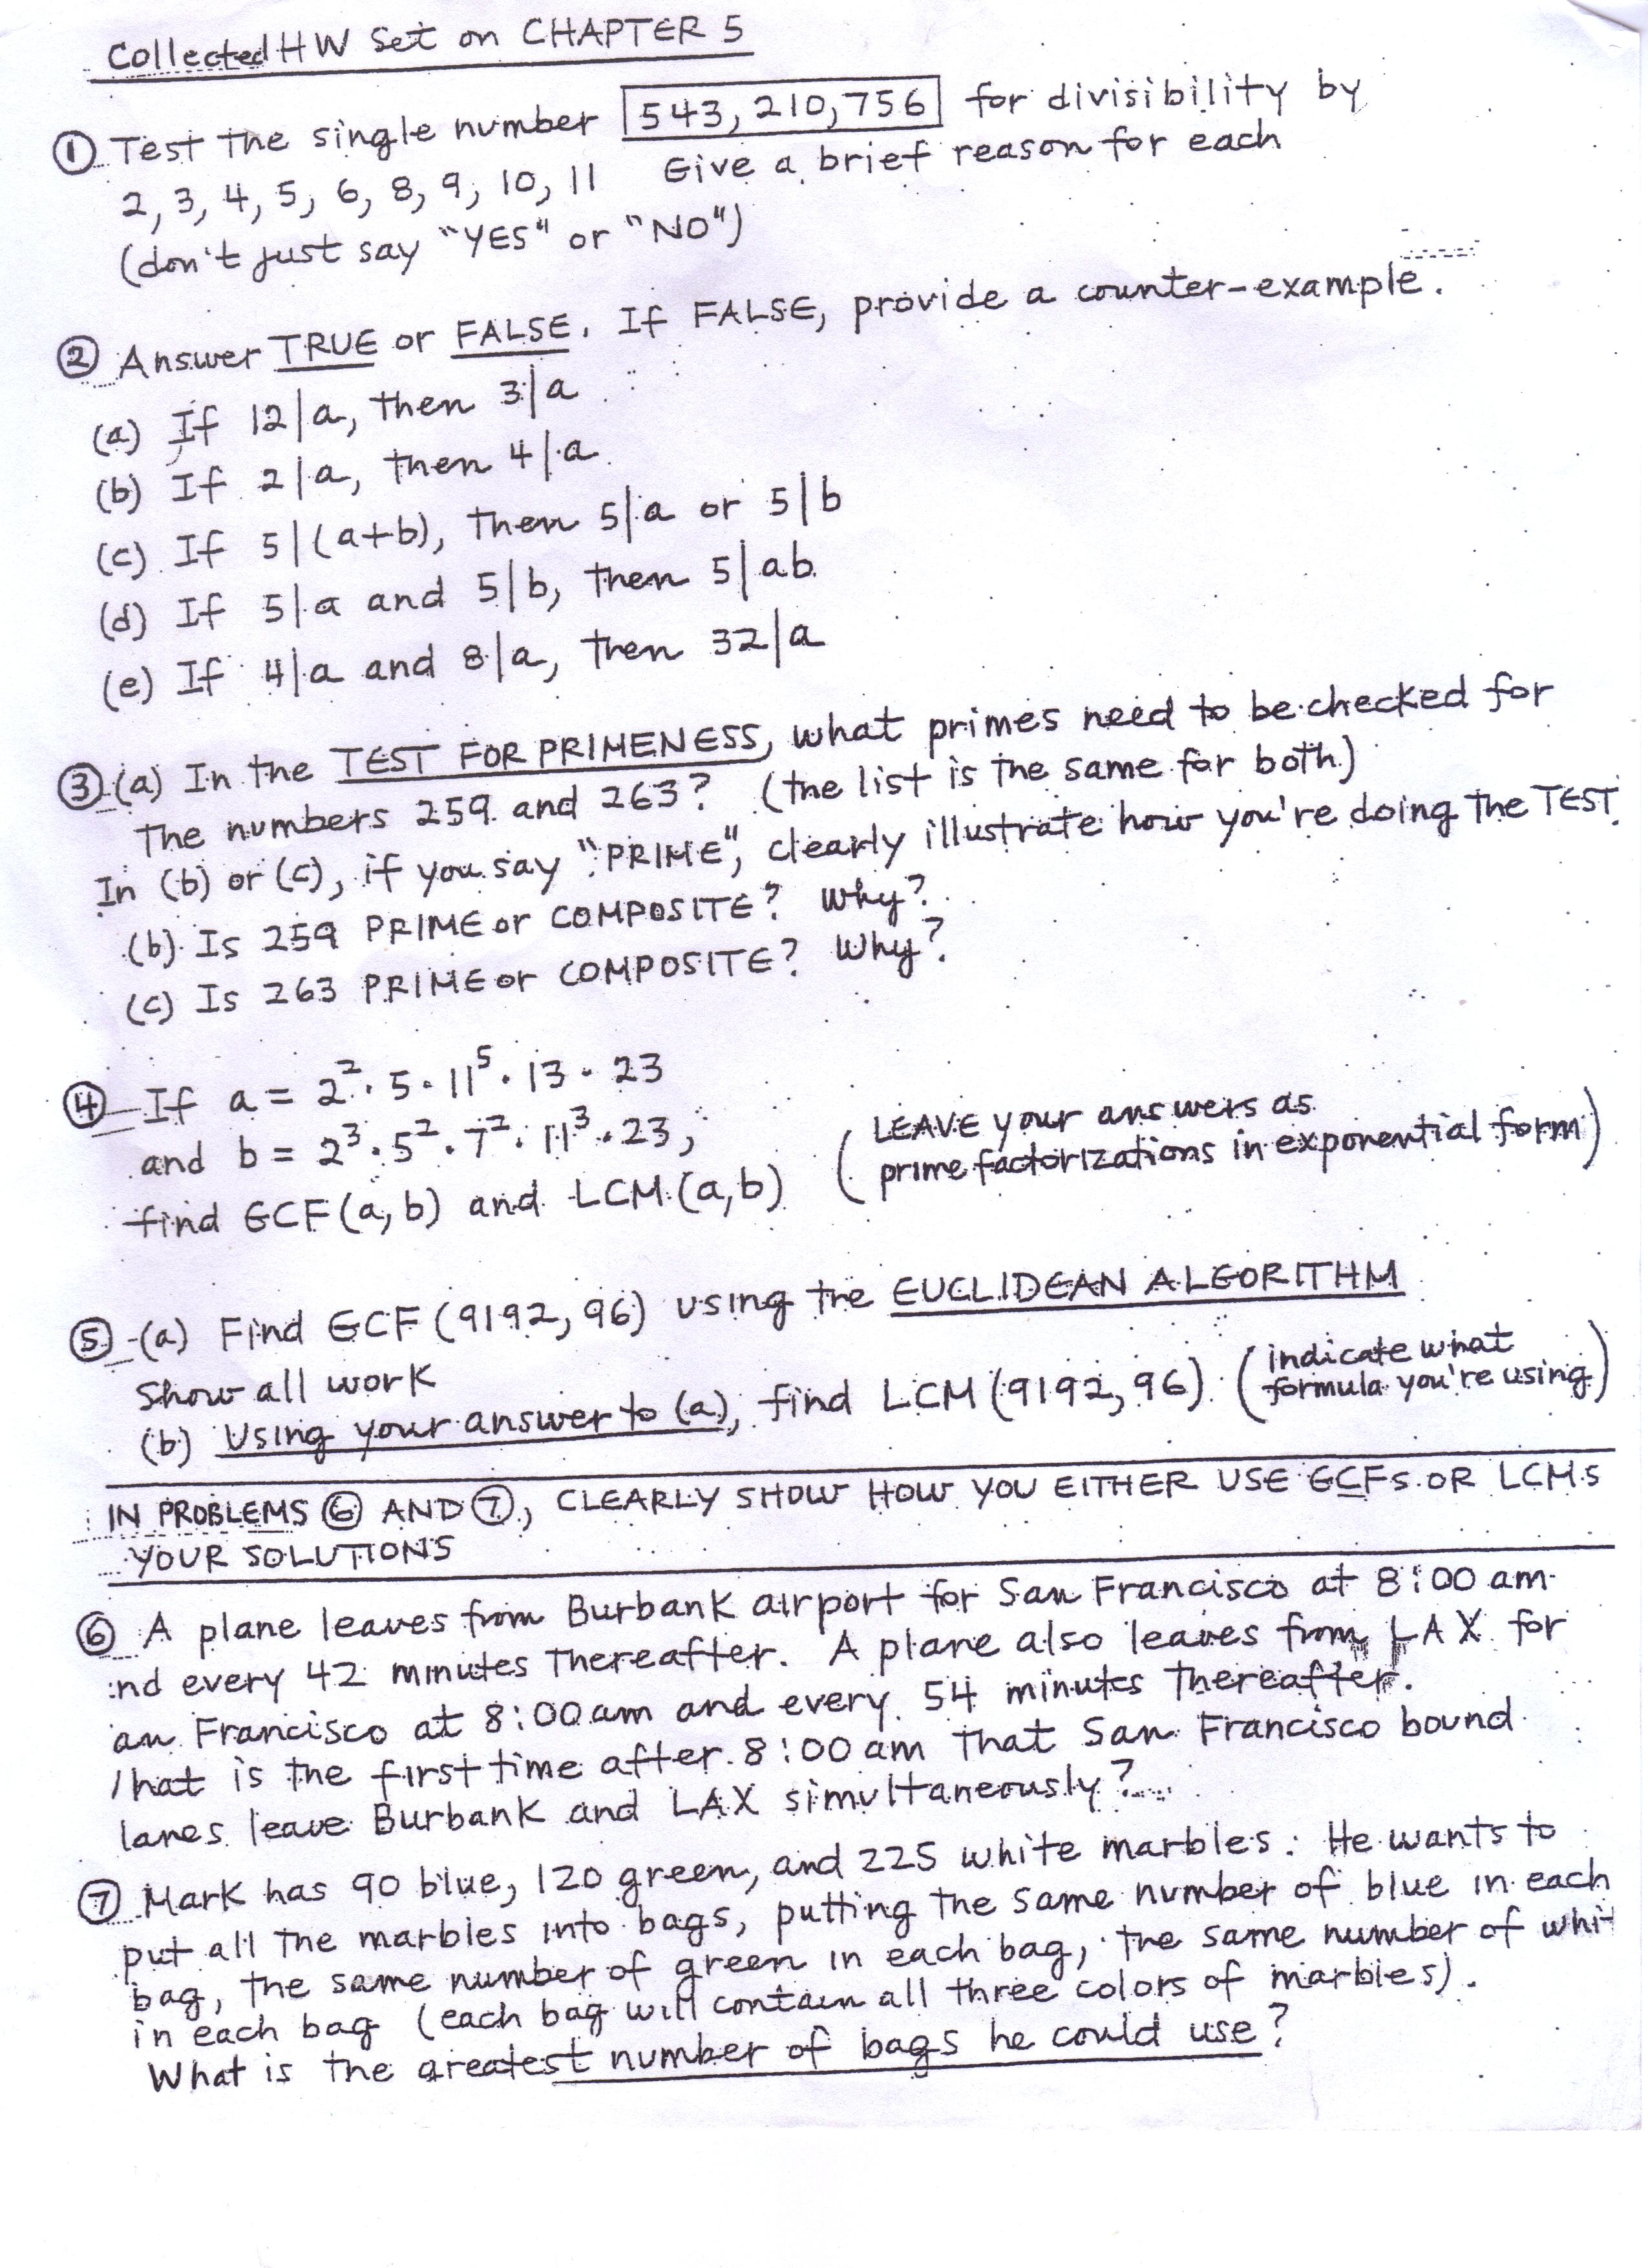 Collected HW Set on CHAPTER 5
① Test the single number 543,210,756 for divisibility by
2, 3, 4, 5, 6, 8, 9, 10, 11 Give a brief reason for each
(don't just say "YES" or "NO")
② Answer TRUE or FALSE. If FALSE, provide a counter-example.
(a) If 12|a, then 3|a
(b) If 2|a, then 4|a
(c) If 5|(a+b), then 5|a or 5|b
(d) If 5|a and 5|b, then 5|ab
(e) If 4|a and 8|a, then 32|a
③ (a) In the TEST FOR PRIMENESS, what primes need to be checked for
the numbers 259 and 263? (the list is the same for both)
In (b) or (c), if you say "PRIME", clearly illustrate how you're doing the TEST.
(b) Is 259 PRIME or COMPOSITE? Why?
(c) Is 263 PRIME or COMPOSITE? Why?
④ If a = 2²·5·11⁵·13·23
and b = 2³·5²·7²·11³·23,
find GCF(a,b) and LCM(a,b) (LEAVE your answers as
prime factorizations in exponential form)
⑤ (a) Find GCF(9192, 96) using the EUCLIDEAN ALGORITHM
Show all work
(b) Using your answer to (a), find LCM(9192, 96). (indicate what
formula you're using)
IN PROBLEMS ⑥ AND ⑦, CLEARLY SHOW HOW YOU EITHER USE GCFs OR LCMs
YOUR SOLUTIONS
⑥ A plane leaves from Burbank airport for San Francisco at 8:00 am
nd every 42 minutes thereafter. A plane also leaves from LAX for
an Francisco at 8:00 am and every 54 minutes thereafter.
hat is the first time after 8:00 am that San Francisco bound
lanes leave Burbank and LAX simultaneously?
⑦ Mark has 90 blue, 120 green, and 225 white marbles. He wants to
put all the marbles into bags, putting the same number of blue in each
bag, the same number of green in each bag, the same number of whit
in each bag (each bag will contain all three colors of marbles).
What is the greatest number of bags he could use?